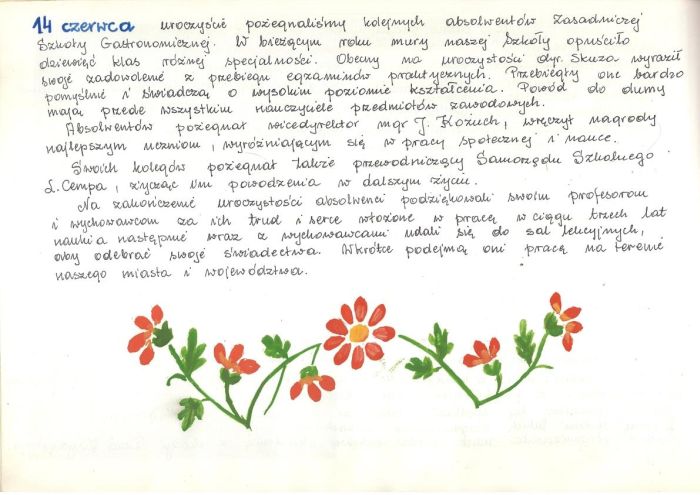 14 czerwca uroczyście pożegnaliśmy kolejnych absolwentów Zasadniczej
Szkoły Gastronomicznej. W bieżącym roku mury naszej Szkoły opuściło
dziewięć klas różnej specjalności. Obecny na uroczystości dyr. Skuza wyraził
swoje zadowolenie z przebiegu egzaminów praktycznych. Przebiegły one bardzo
pomyślnie i świadczą o wysokim poziomie kształcenia. Powód do dumy
mają przede wszystkim nauczyciele przedmiotów zawodowych.
Absolwentów pożegnał wicedyrektor mgr J. Kożuch, wręczył nagrody
najlepszym uczniom, wyróżniającym się w pracy społecznej i nauce.
Swoich kolegów pożegnał także przewodniczący Samorządu Szkolnego
L. Cempa, życząc im powodzenia w dalszym życiu.
Na zakończenie uroczystości absolwenci podziękowali swoim profesorom
i wychowawcom za ich trud i serce włożone w pracę w ciągu trzech lat
nauki a następnie wraz z wychowawcami udali się do sal lekcyjnych,
aby odebrać swoje świadectwa. Wkrótce podejmą oni pracę na terenie
naszego miasta i województwa.